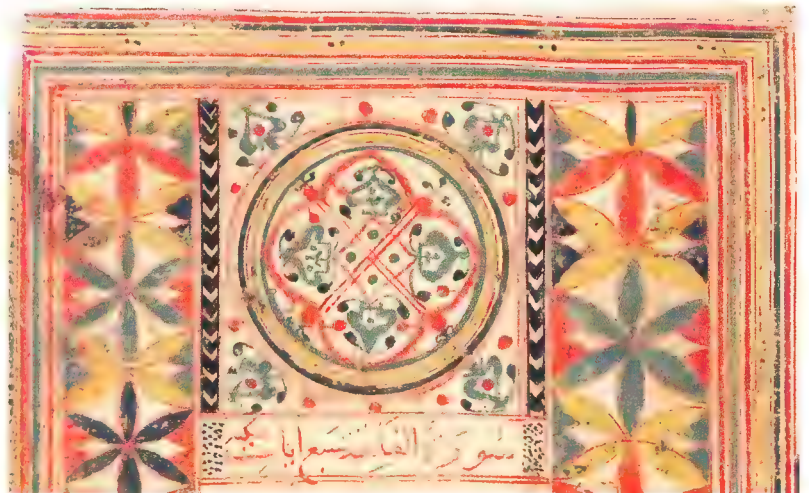 سورة الفاتحة سبع ايات